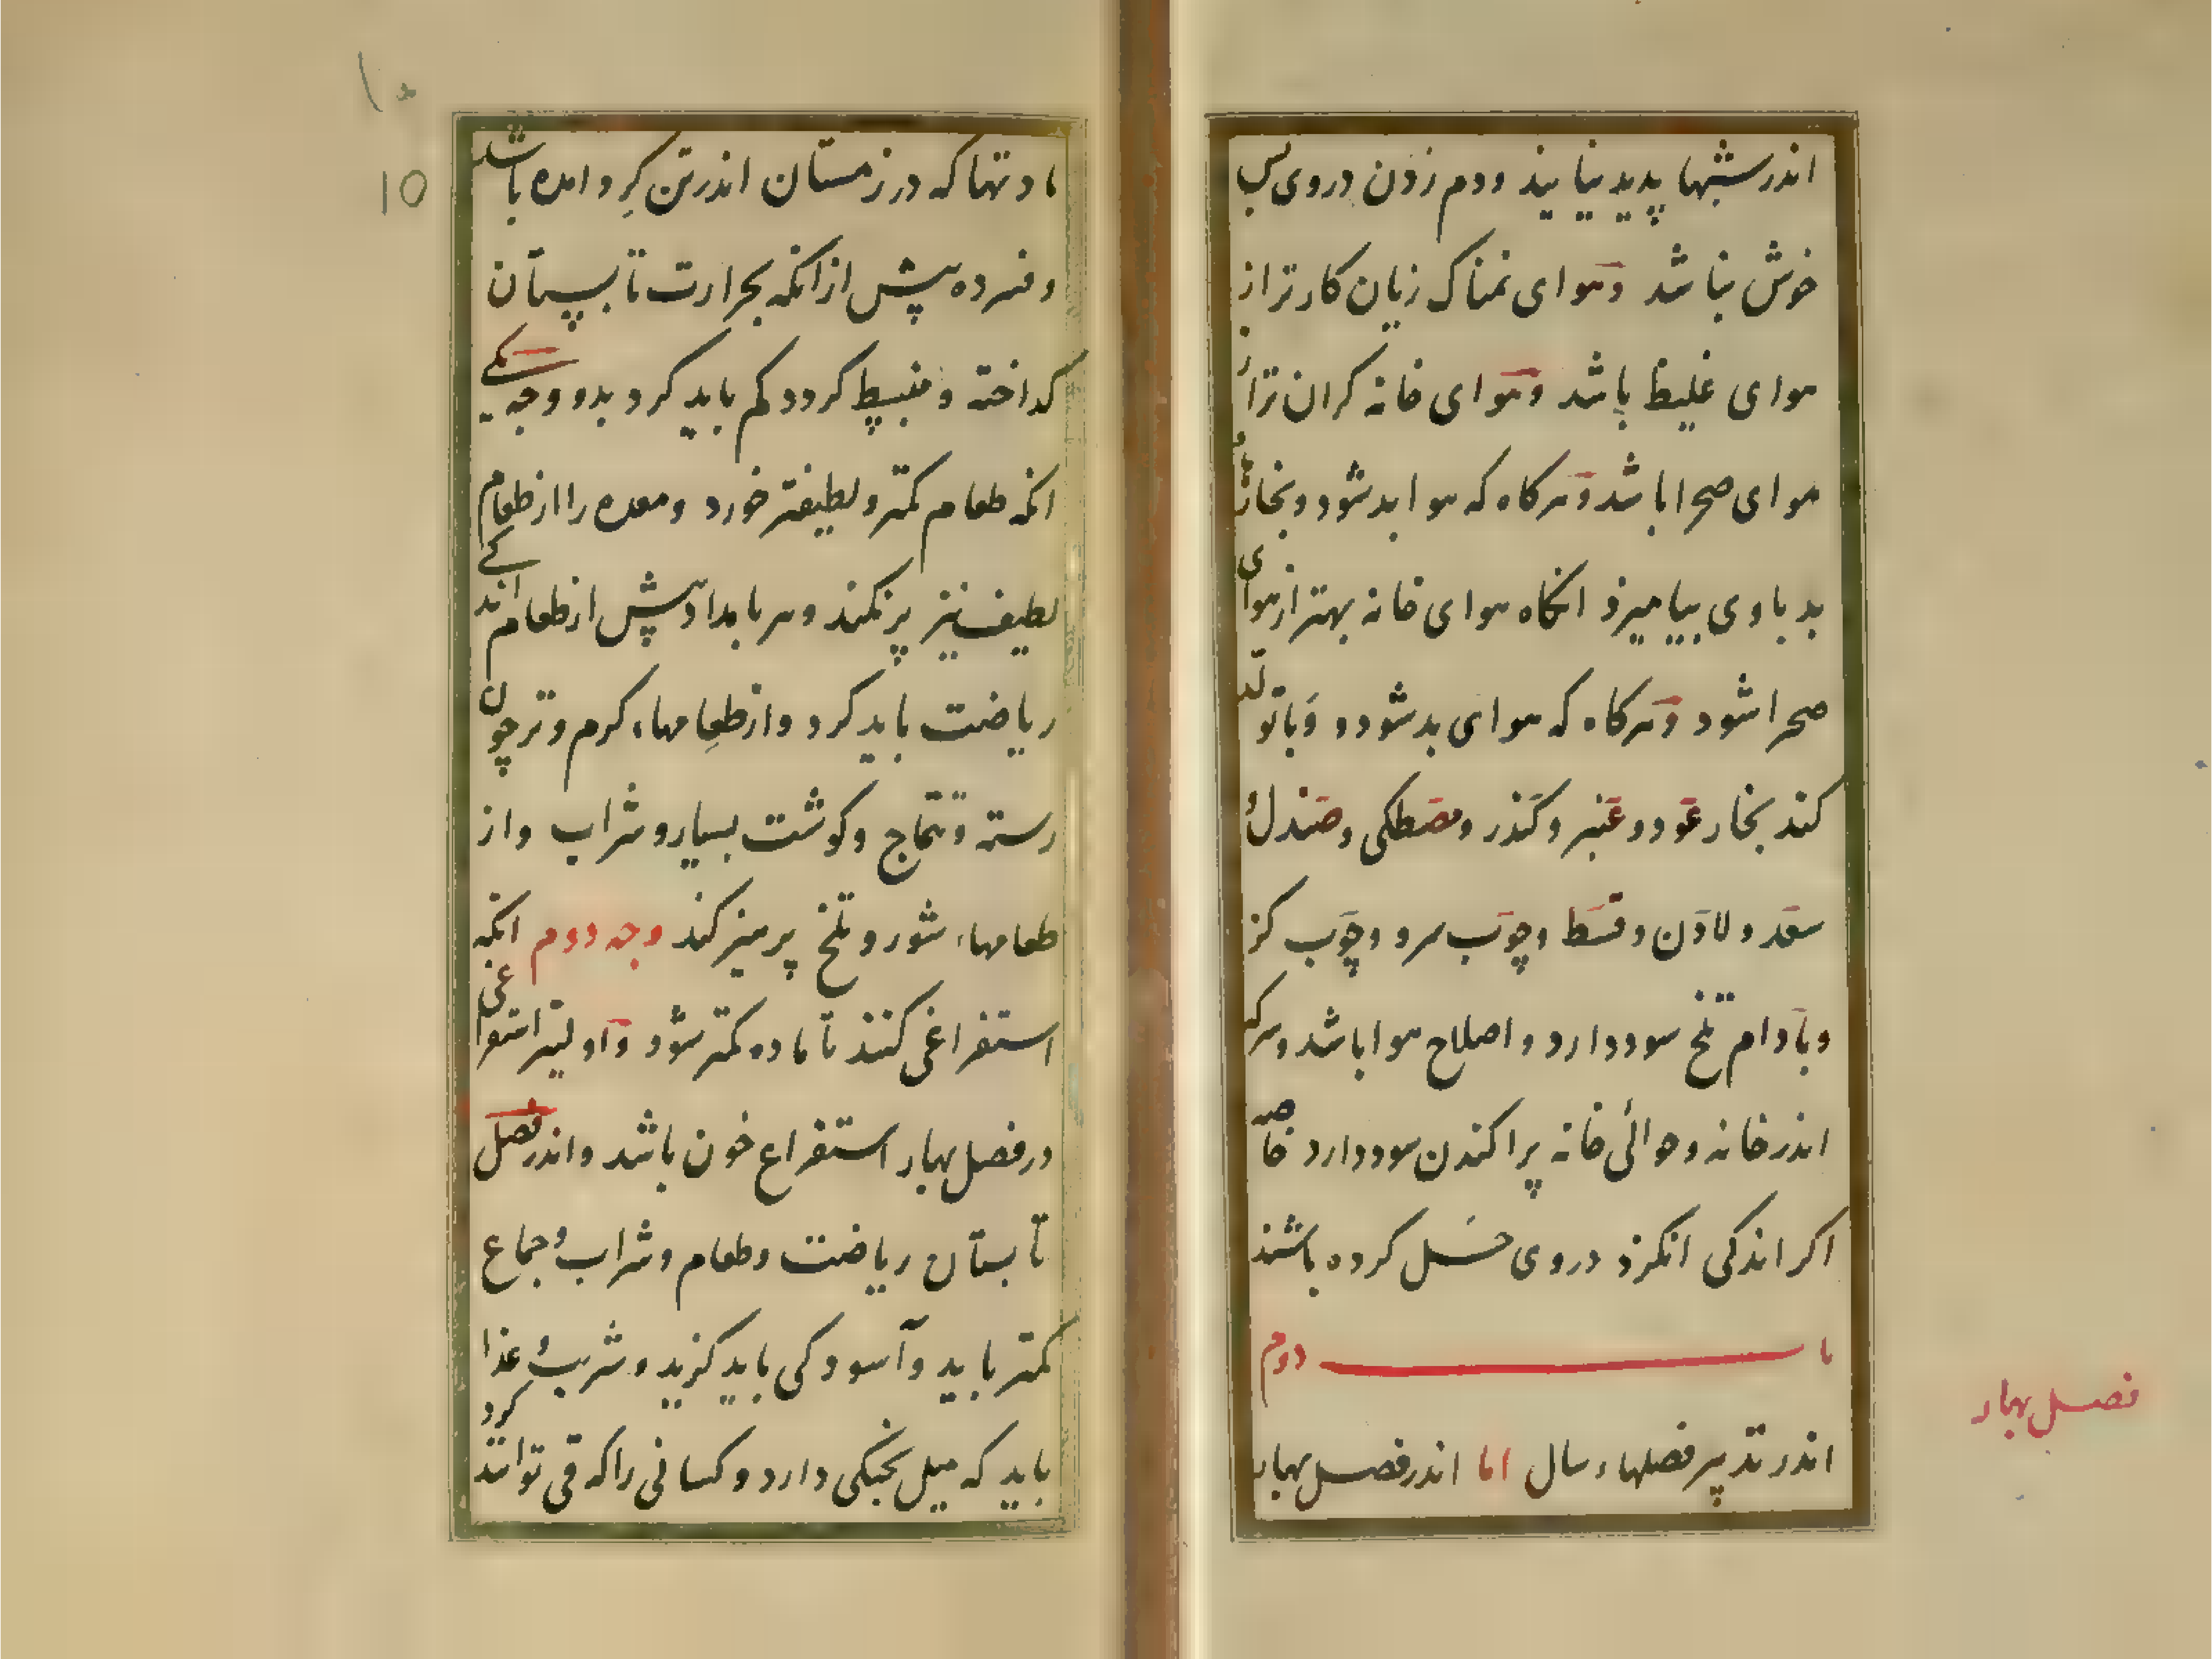 اندر شبها پدید نیایند ودم زدن دروی بس
خوش نباشد وهوای نمناک زیان کارتر از
هوای غلیظ باشد وهوای خانه کران تر از
هوای صحرا باشد وهرکاه که هوا بد شود وبخارها
بد باوی بیامیزد انکاه هوای خانه بهتر از هوای
صحرا شود وهرکاه که هوای بد شود و وبا تولد
کند بخار عود و عنبر و کندر و مصطکی و صندل و
سعد و لادن و قسط و چوب سرو و چوب کز
و بادام تلخ سود دارد و اصلاح هوا باشد و سرکه
اندر خانه و حوالی خانه پراکندن سود دارد خاصه
اکر اندکی انکزد دروی حل کرده باشند
باب دوم
اندر تدپیر فصلهاء سال اما اندر فصل بهار
فصل بهار
۱۰
10
مادتها که در زمستان اندرتن کرد امده باشد
و فسرده پیش از انکه بحرارت تابستان
کداخته و منبسط کردد کم باید کرد بدو وجه یکی
انکه طعام کمتر و لطیفتر خورد و معده را از طعام
لطیف نیز پر نکند و هر بامداد پیش از طعام اندکی
ریاضت باید کرد و از طعامهاء کرم و تر چون
رسته و تتماج و کوشت بسیار و شراب و از
طعامهاء شور و تلخ پرهیز کند وجه دوم انکه
استفراغی کنند تا ماده کمتر شود و اولیتر استفراغی
در فصل بهار استفراغ خون باشد و اندر فصل
تابستان ریاضت و طعام و شراب و جماع
کمتر باید و آسودکی باید کزید و شربت و غذا
باید که میل بخنکی دارد و کسانی را که قی توانند کرد